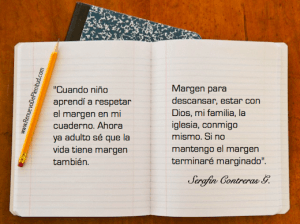 www.RenuevoDePlenitud.com
"Cuando niño
aprendí a respetar
el margen en mi
cuaderno. Ahora
ya adulto sé que la
vida tiene margen
también.
Margen para
descansar, estar con
Dios, mi familia, la
iglesia, conmigo
mismo. Si no
mantengo el margen
terminaré marginado".
Serafín Contreras G.